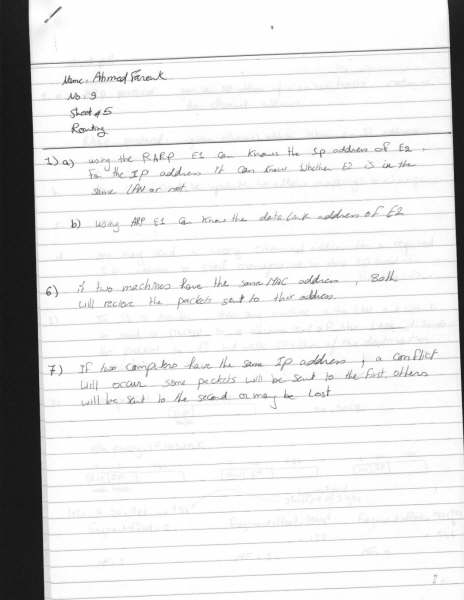 Name: Ahmad Farouk
No: 9
Sheet #5
Routing
1) a) using the RARP E1 can knows the Ip address of E2.
For the IP address it can know whether E2 is in the
same LAN or not
b) using ARP E1 can know the data link address of E2
6) if two machines have the same MAC address, Both
will recieve the packets sent to this address.
7) If two computers have the same Ip address, a conflict
will occur some packets will be sent to the first, others
will be sent to the second or may be Lost